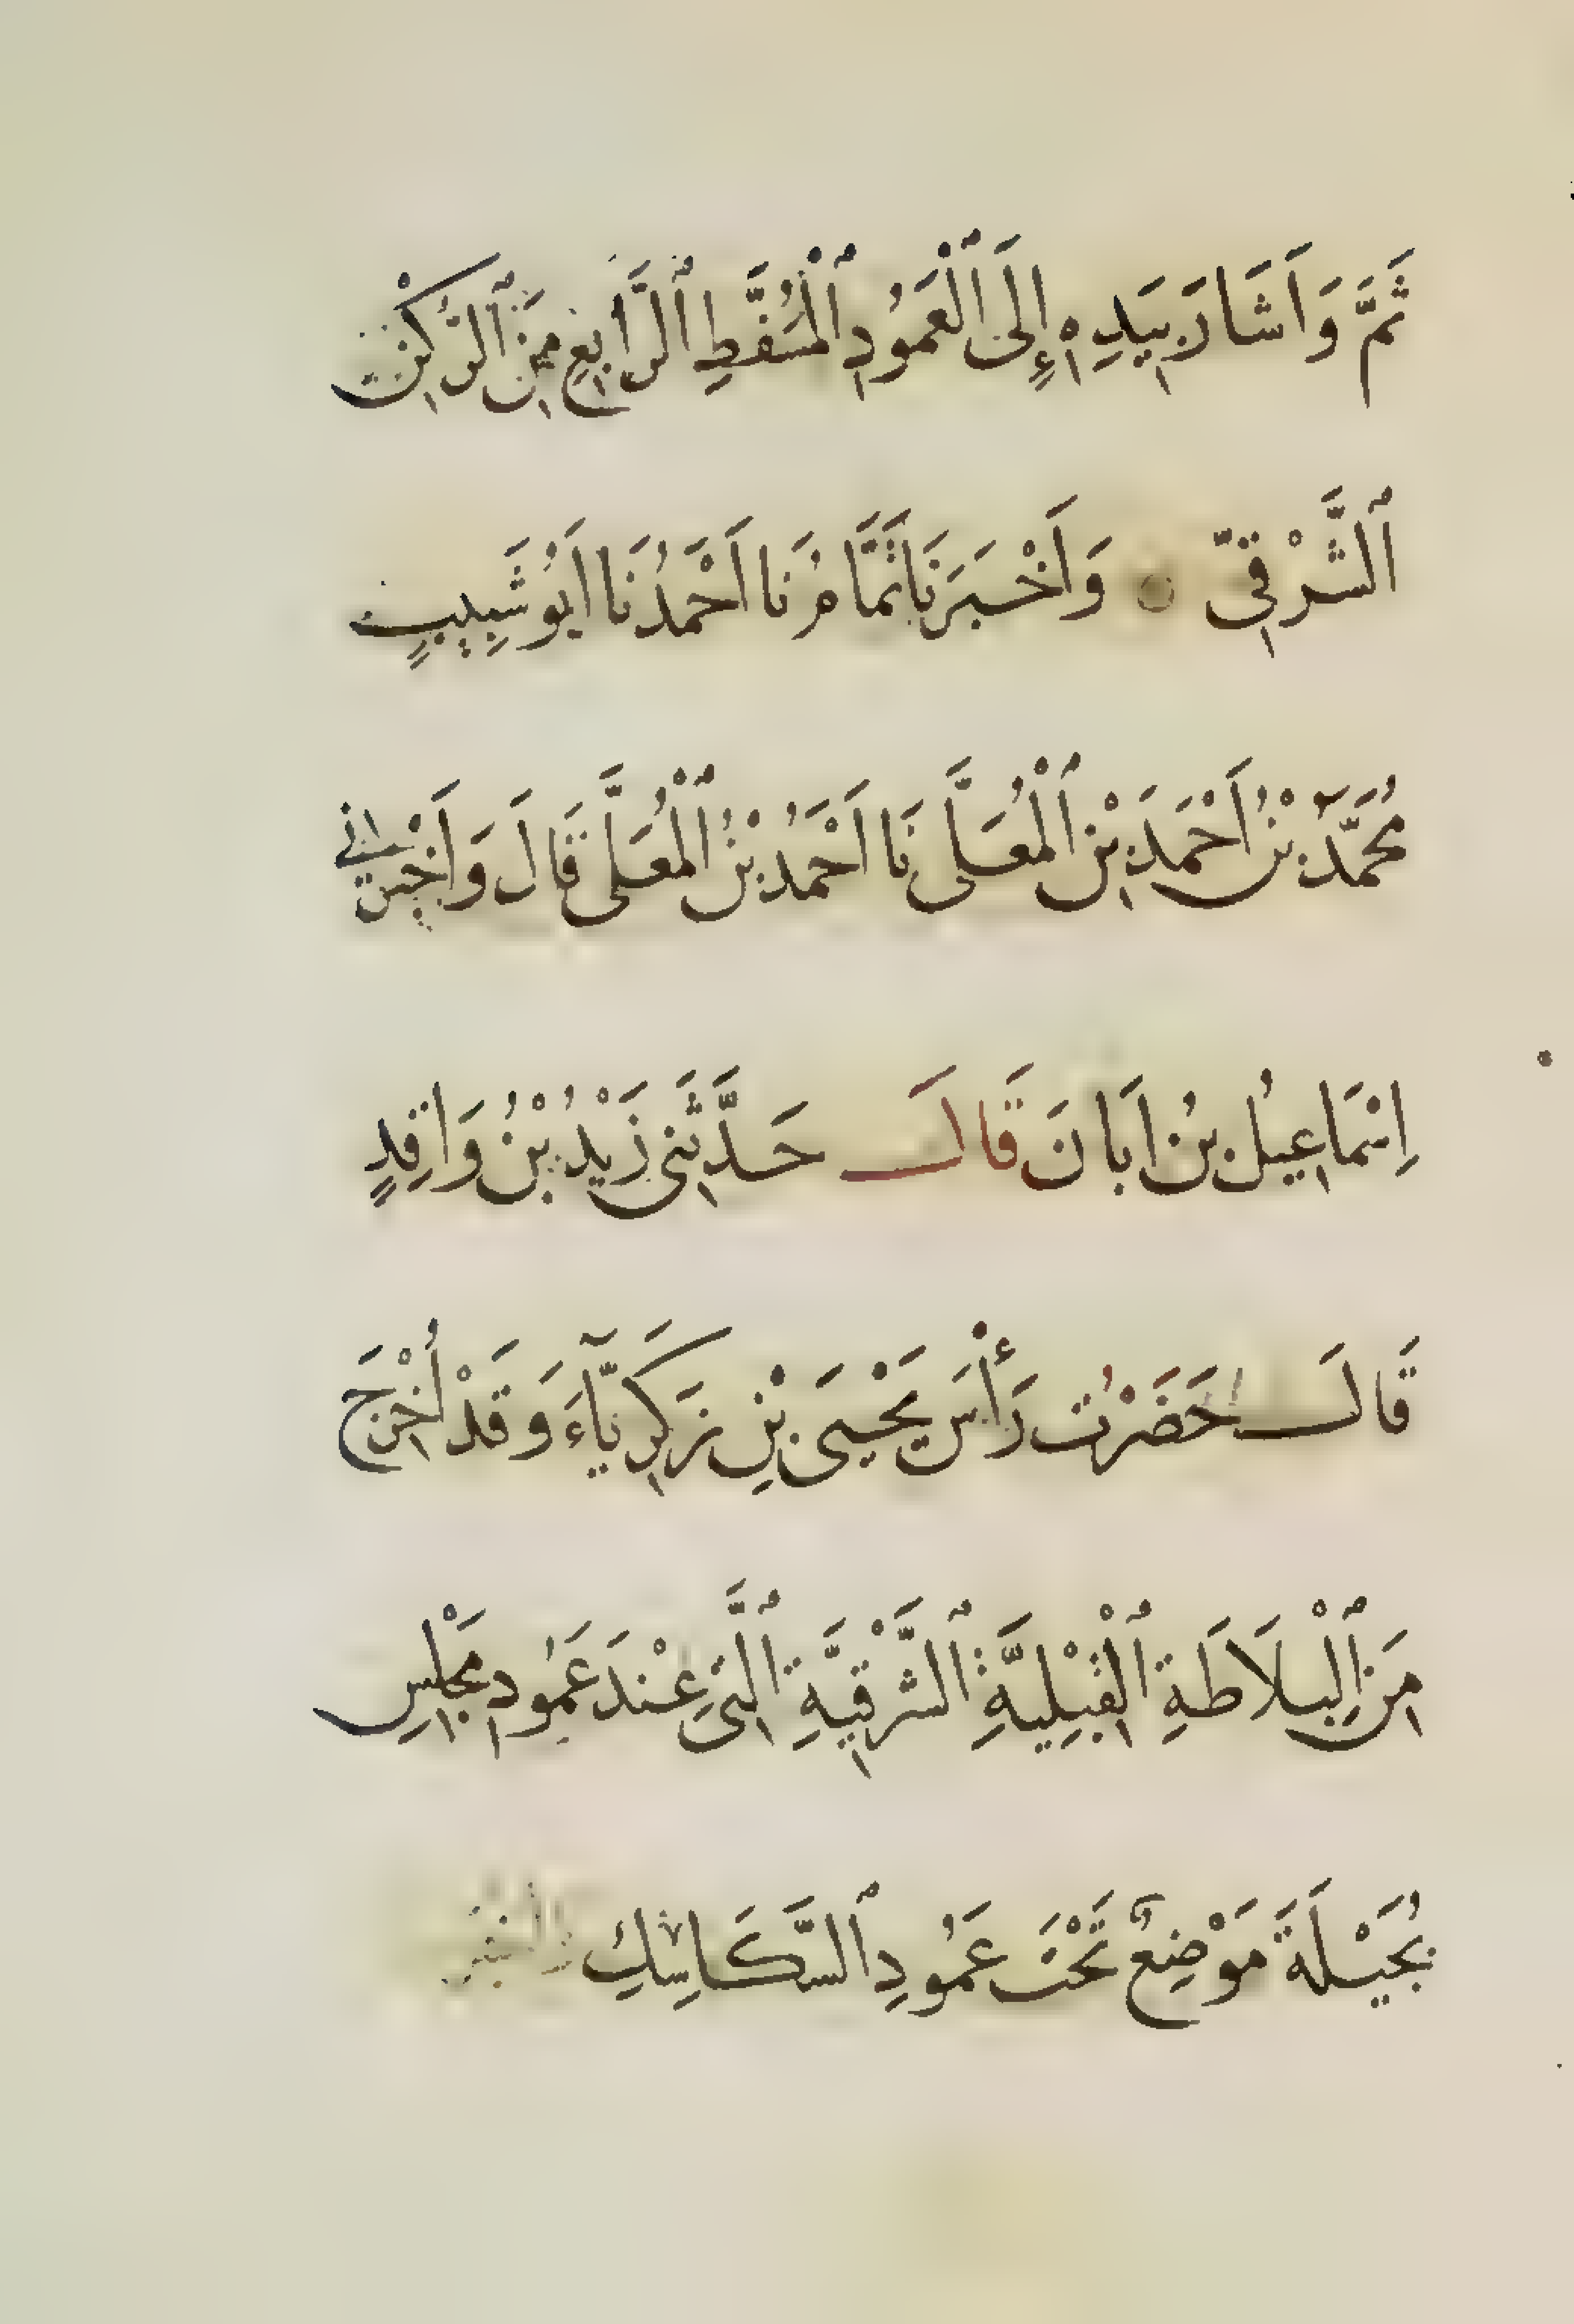 ثَمَّ وَاَشَارَ بِيَدِهِ إِلَى ٱلْعَمُودِ ٱلْمُسَفَّطِ ٱلرَّابِعِ مِنَ ٱلرُّكْنِ
ٱلشَّرْقِيِّ ۝ وَاَخْبَرَنَا تَمَّامُ نَا اَحْمَدُ نَا اَبُو شَبِيبٍ
مُحَمَّدُ بْنُ اَحْمَدَ بْنِ ٱلْمُعَلَّى نَا اَحْمَدُ بْنُ ٱلْمُعَلَّى قَالَ وَاَخْبَرَنِي
اِسْمَاعِيلُ بْنُ اَبَانَ قَالَ حَدَّثَنِي زَيْدُ بْنُ وَاقِدٍ
قَالَ حَضَرْتُ رَأْسَ يَحْيَى بْنِ زَكَرِيَّآءَ وَقَدْ اُخْرِجَ
مِنَ ٱلْبَلَاطَةِ ٱلْقِبْلِيَّةِ ٱلشَّرْقِيَّةِ ٱلَّتِي عِنْدَ عَمُودِ مَجْلِسِ
بُجَيْلَةَ مَوْضِعٌ تَحْتَ عَمُودِ ٱلسَّكَاسِكِ